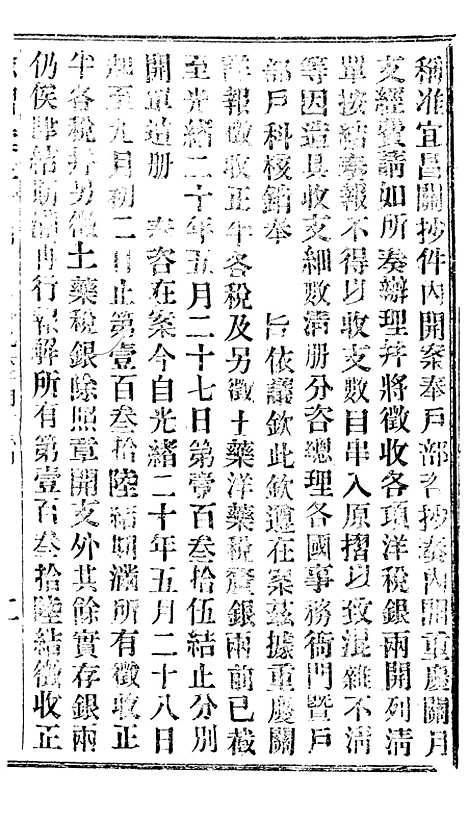 稱准宜昌關抄件內開案奉戶部咨抄奏內開重慶關月
支經費請如所奏辦理并將徵收各項洋稅銀兩開列清
單按結奏報不得以收支數目串入原摺以致混雜不清
等因造具收支細數清册分咨總理各國事務衙門暨戶
部戶科核銷奉　旨依議欽此欽遵在案茲據重慶關
詳報徵收正半各稅及另徵土藥洋藥稅釐銀兩前已截
至光緒二十年五月二十七日第壹百叁拾伍結止分別
開單造册　奏咨在案今自光緒二十年五月二十八日
起至九月初二日止第壹百叁拾陸結期滿所有徵收正
半各稅并另徵土藥稅銀除照章開支外其餘實存銀兩
仍俟肆結期滿再行報解所有第壹百叁拾陸結徵收正